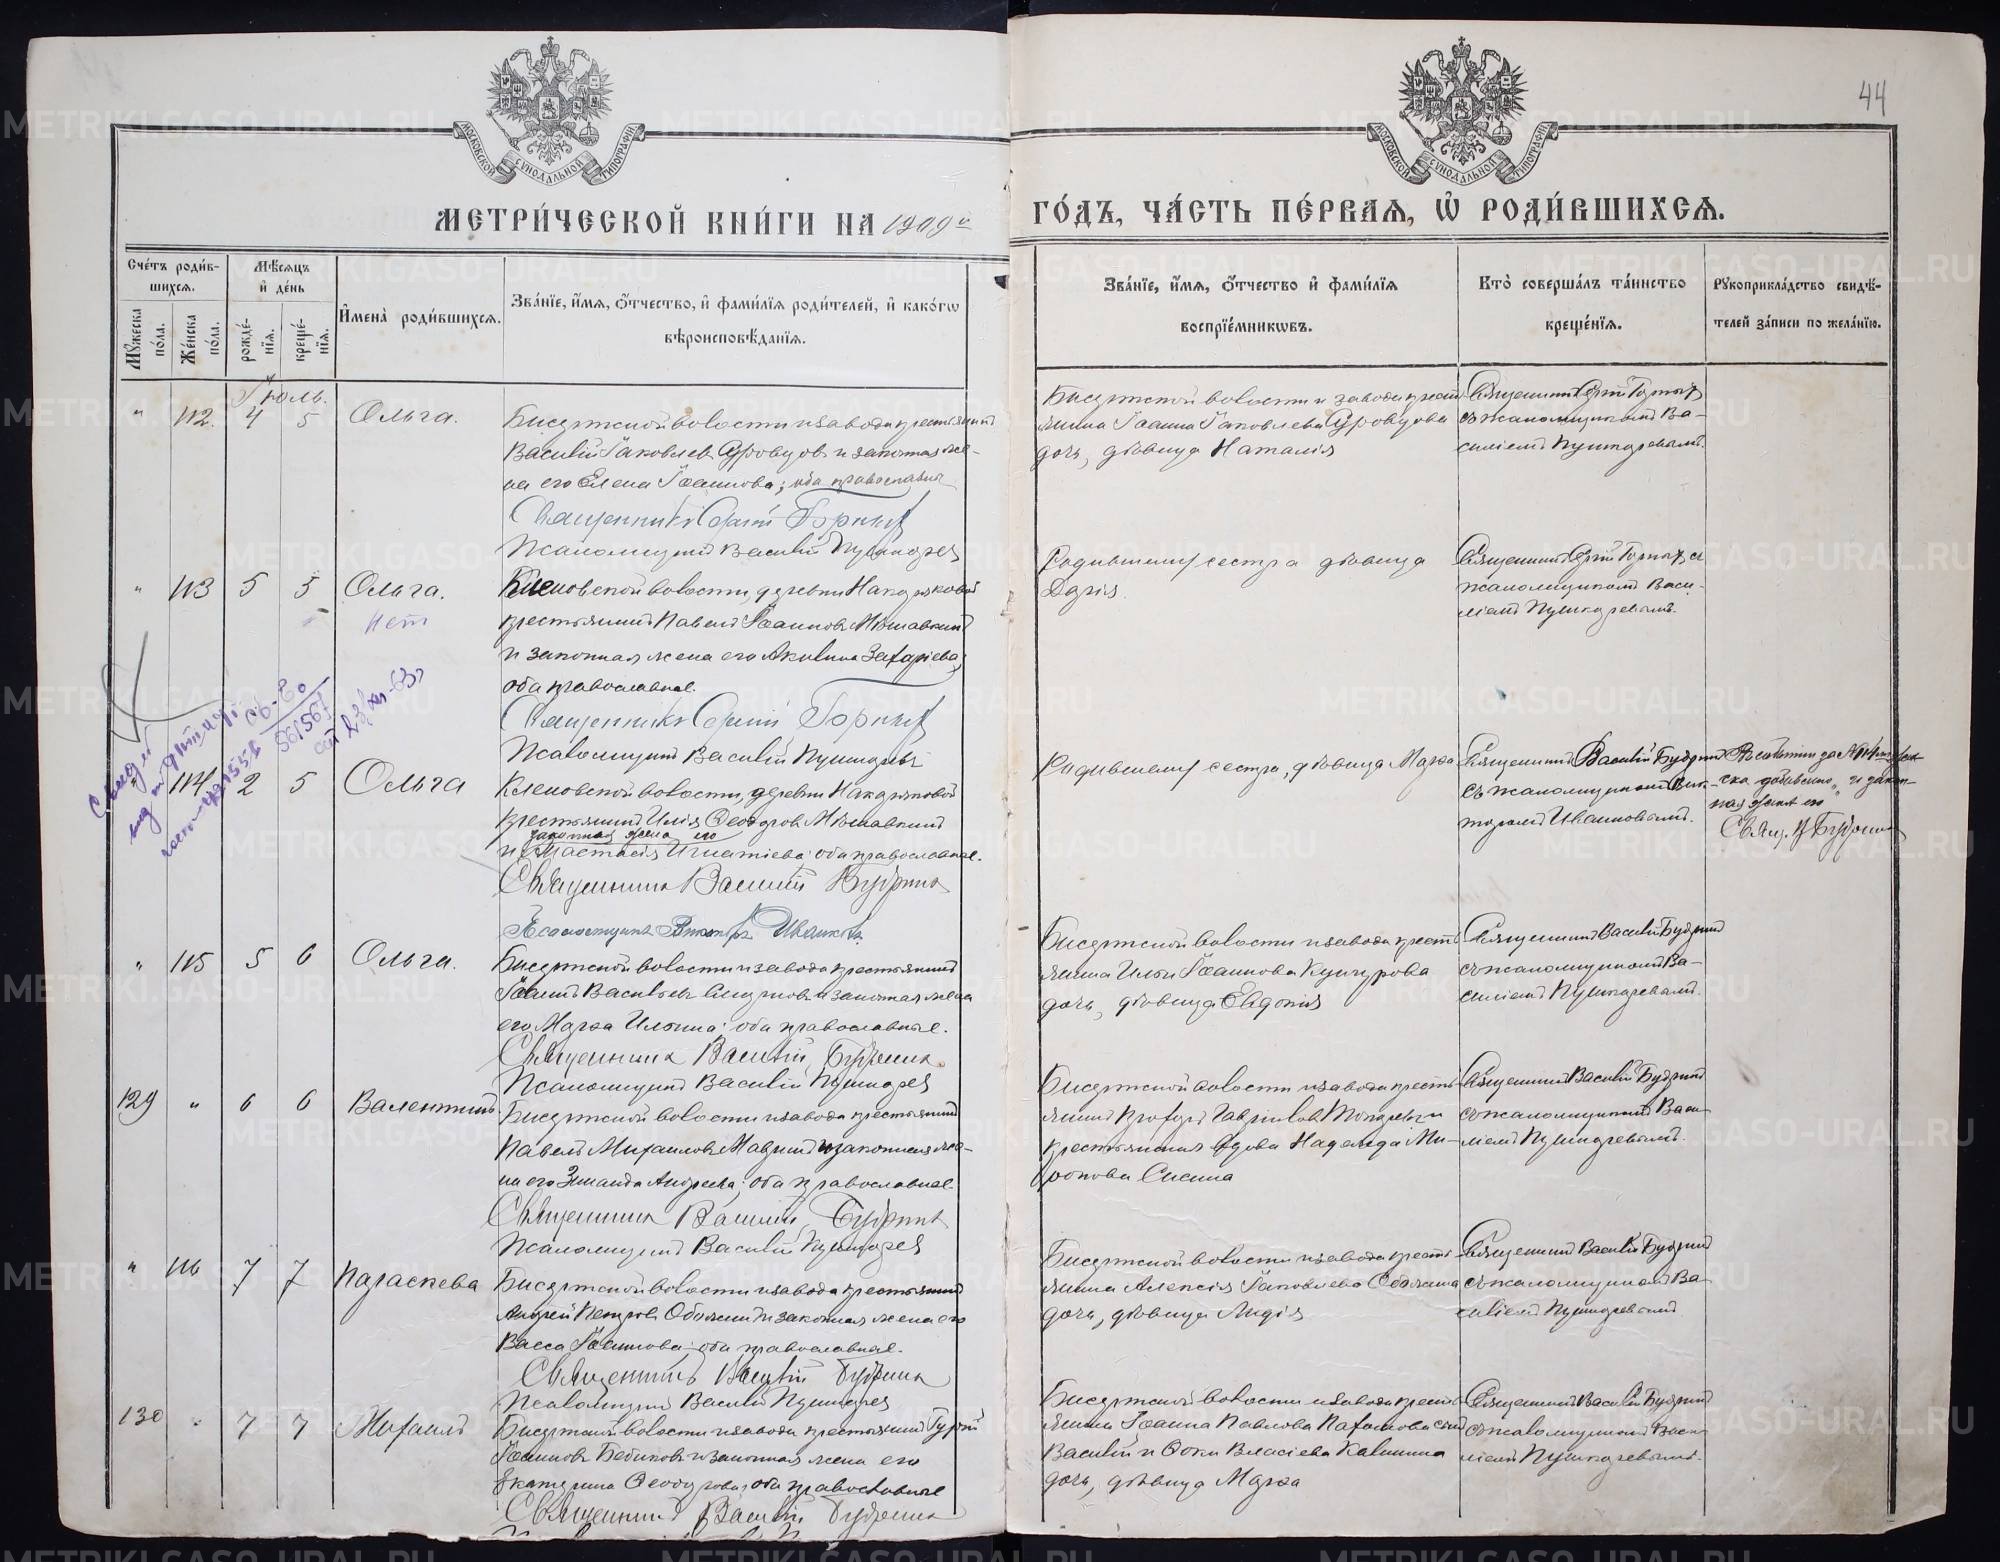 44
МОСКОВСКОЙ СУНОДАЛЬНОЙ ТИПОГРАФІИ
МОСКОВСКОЙ СУНОДАЛЬНОЙ ТИПОГРАФІИ
МЕТРИ́ЧЕСКОЙ КНИ́ГИ НА 1909й
ГО́ДЪ, ЧА́СТЬ ПЕ́РВАЯ, Ѡ҆ РОДИ́ВШИХСЯ.
Сче́тъ роди́в-
шихся.
Мꙋ́жеска по́ла.
Же́нска по́ла.
Мѣ́сяцъ
и҆ де́нь
рожде́-
нїя.
креще́-
нїя.
И҆мена̀ роди́вшихся.
Зва́нїе, и҆́мя, ѻ҆́тчество, и҆ фами́лїя роди́телей, и҆ како́гѡ
вѣроисповѣ́данїя.
Зва́нїе, и҆́мя, ѻ҆́тчество и҆ фами́лїя
воспрїе́мникѡвъ.
Кто̀ соверша́лъ та́инство
креще́нїя.
Рꙋкоприкла́дство свидѣ́-
телей за́писи по жела́нїю.
Іюль.
" 112. 4 5 Ольга.
Бисертской волости и завода крестьянинъ
Василій Іаковлевъ Суровцовъ и законная же-
на его Елена Іоаннова; оба православные
Священникъ Сергій Горныхъ
Псаломщикъ Василій Пушкаревъ
Бисертской волости и завода кресть-
янина Іоанна Іаковлева Суровцова
дочь, дѣвица Наталія
Священникъ Сергій Горныхъ
съ псаломщикомъ Ва-
силіемъ Пушкаревымъ.
" 113 5 5 Ольга.
нет
Кленовской волости, деревни Накоряковой
крестьянинъ Павелъ Іоанновъ Мѣшавкинъ
и законная жена его Акилина Захаріева;
оба православные.
Священникъ Сергій Горныхъ
Псаломщикъ Василій Пушкаревъ
Родившейся сестра дѣвица
Дарія
Священникъ Сергій Горныхъ съ
псаломщикомъ Васи-
ліемъ Пушкаревымъ.
" 114 2 5 Ольга
Кленовской волости, деревни Накоряковой
крестьянинъ Илія Ѳеодоровъ Мѣшавкинъ
законная жена его
и Анастасія Игнатіева; оба православные.
Священникъ Василій Будринъ
Псаломщикъ Викторъ Ивановъ
Родившейся сестра, дѣвица Марѳа
Священникъ Василій Будринъ
съ псаломщикомъ Вик-
торомъ Ивановымъ.
добавлено „и закон-
ная жена его
Свящ. В Будринъ
" 115 5 6 Ольга.
Бисертской волости и завода крестьянинъ
Іоаннъ Васильевъ и законная жена
его Марѳа Ильина; оба православные.
Священникъ Василій Будринъ
Псаломщикъ Василій Пушкаревъ
Бисертской волости и завода кресть-
янина Ильи Іоаннова Кунгурова
дочь, дѣвица Евдокія
Священникъ Василій Будринъ
съ псаломщикомъ Ва-
силіемъ Пушкаревымъ.
129 " 6 6 Валентинъ.
Бисертской волости и завода крестьянинъ
Павелъ Михаиловъ Мавринъ и законная же-
на его Зинаида Андреева; оба православные
Священникъ Василій Будринъ
Псаломщикъ Василій Пушкаревъ
Бисертской волости и завода кресть-
янинъ Прохоръ Гавріиловъ Токаревъ и
крестьянская вдова Надежда Ми-
ронова Сисина
Священникъ Василій Будринъ
съ псаломщикомъ Васи-
ліемъ Пушкаревымъ.
" 116 7 7 Параскева
Бисертской волости и завода крестьянинъ
Андрей Петровъ Обожинъ и законная жена его
Васса Іоаннова; оба православные.
Священникъ Василій Будринъ
Псаломщикъ Василій Пушкаревъ
Бисертской волости и завода кресть-
янина Алексія Іаковлева Обожина
дочь, дѣвица Лидія
Священникъ Василій Будринъ
съ псаломщикомъ Ва-
силіемъ Пушкаревымъ
130 " 7 7 Михаилъ
Бисертской волости и завода крестьянинъ Гурій
Іоанновъ Бебиковъ и законная жена его
Екатерина Ѳеодорова; оба православные
Священникъ Василій Будринъ
Бисертской волости и завода кресть-
янина Іоанна Павлова Пахомова сынъ
Василій и Ѳоки Власіева Калинина
дочь, дѣвица Марѳа
Священникъ Василій Будринъ
съ псаломщикомъ Васи-
ліемъ Пушкаревымъ.
METRIKI.GASO-URAL.RU